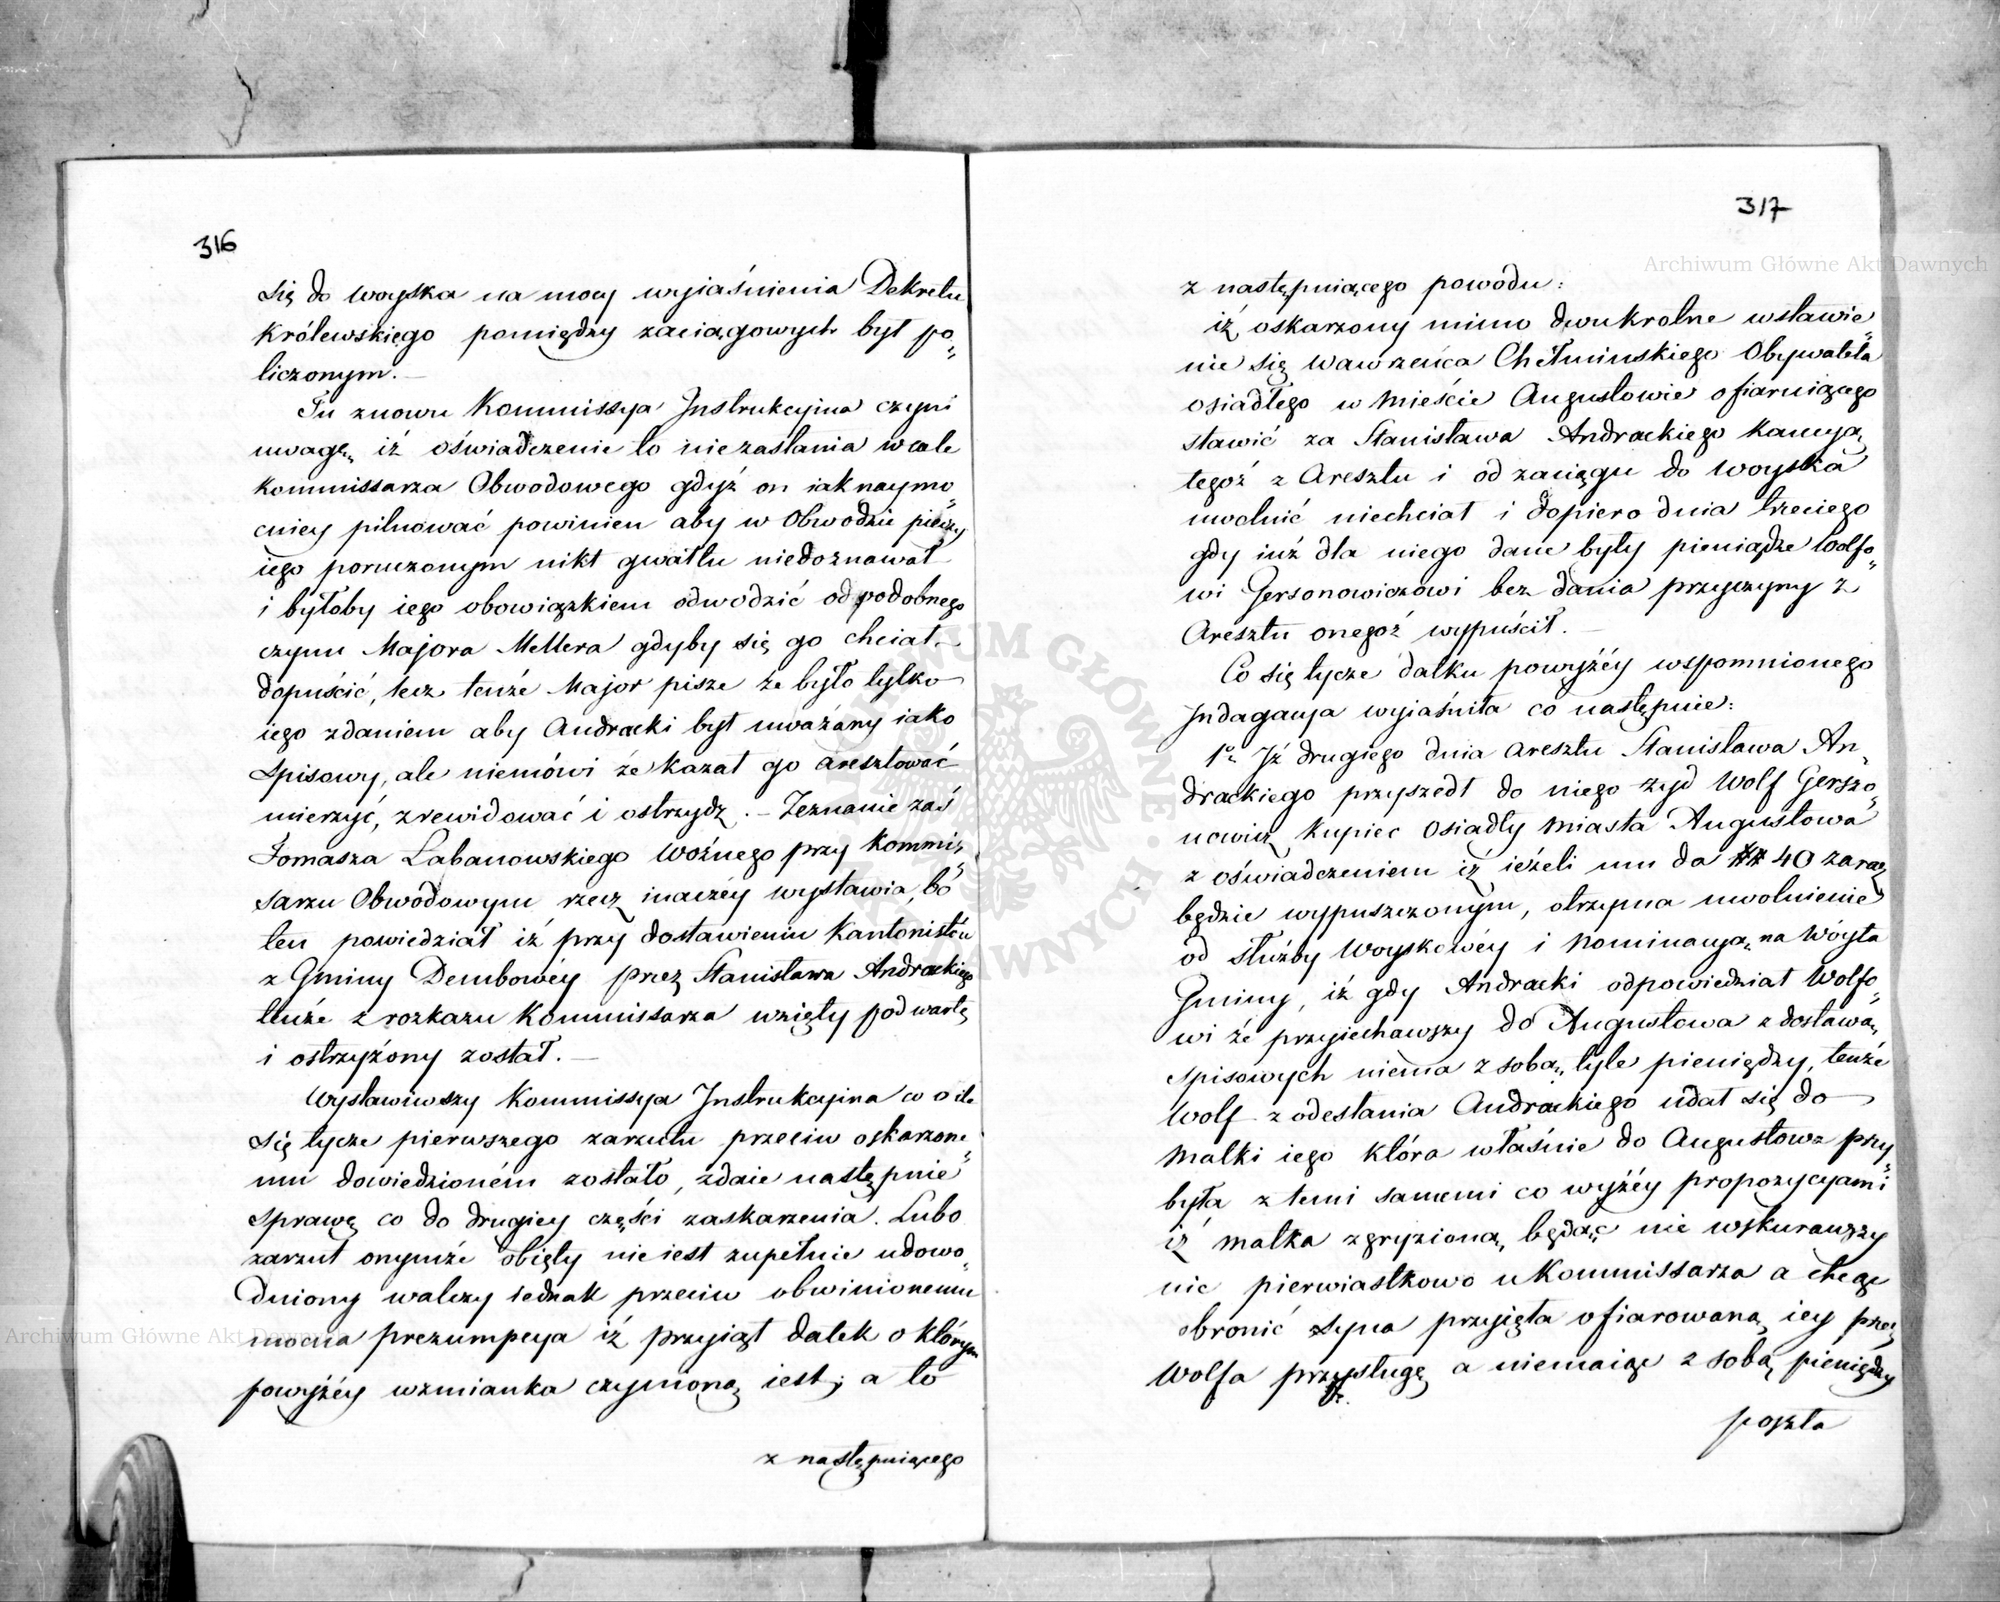 316
się do woyska na mocy wyiaśnienia Dekretu
Królewskiego pomiędzy zaciągowych był po„
liczonym. —
Tu znowu Kommissya Instrukcyina czyni
uwagę, iż oświadczenie to nie zasłania wcale
Kommissarza Obwodowego gdyż on iak naymo„
cniey pilnować powinien aby w Obwodzie pieczy
iego poruczonym nikt gwałtu niedoznawał
i byłoby iego obowiązkiem odwodzić od podobnego
czynu Majora Mellera gdyby się go chciał
dopuścić, lecz tenże Major pisze że było tylko
iego zdaniem aby Andracki był uważany iako
spisowy, ale niemówi że kazał go aresztować
mierzyć, zrewidować i ostrzydz. — Zeznanie zaś
Tomasza Labanowskiego Woźnego przy Kommis„
sarzu Obwodowym rzecz inaczéy wystawia, bo
ten powiedział iż przy dostawieniu Kantonistów
z Gminy Dembowéy przez Stanisława Andrackiego
tenże z rozkazu Kommissarza wzięty pod wartę
i ostrzyżony został. —
Wystawiwszy Kommissya Instrukcyina co o ile
się tycze pierwszego zarzutu przeciw oskarzone„
mu dowiedzioném zostało, zdaie następnie
sprawę co do drugiey części zaskarzenia. Lubo
zarzut onymże obięty nie iest zupełnie udowo„
dniony walczy iednak przeciw obwinionemu
mocna prezumpcya iż przyiął datek o którym
powyżéy wzmianka czynioną iest; a to
z następuiącego
317
z następuiącego powodu:
iż oskarzony mimo dwukrotne wstawie„
nie się Wawrzeńca Chełminskiego Obywatela
osiadłego w Mieście Augustowie ofiaruiącego
stawić za Stanisława Andrackiego kaucyą,
tegoż z Aresztu i od zaciągu do Woyska
uwolnić niechciał i dopiero dnia trzeciego
gdy iuż dla niego dane były pieniądze Wolfo„
wi Gersonowiczowi bez dania przyczyny z
Aresztu onegoż wypuścił. —
Co się tycze datku powyżéy wspomnionego
Indagacya wyiaśniła co następnie:
1º Iż drugiego dnia aresztu Stanisława An„
drackiego przyszedł do niego żyd Wolf Gerszo„
nowicz kupiec osiadły Miasta Augustowa
z oświadczeniem iż ieżeli mu da ## 40 zaraz
będzie wypuszczonym, otrzyma uwolnienie
od służby Woyskowéy i nominacyą na Wóyta
Gminy, iż gdy Andracki odpowiedział Wolfo„
wi że przyiechawszy do Augustowa z dostawą
spisowych niema z sobą tyle pieniędzy, tenże
Wolf z odesłania Andrackiego udał się do
Matki iego która właśnie do Augustowa przy„
była z temi samemi co wyżéy propozycyami
iż matka zgryzioną będąc nie wskurawszy
nic pierwiastkowo u Kommissarza a chcąc
obronić syna przyięła ofiarowaną iey przez
Wolfa przysługę a niemaiąc z sobą pieniędzy
poszła
Archiwum Główne Akt Dawnych
Archiwum Główne Akt Dawnych
ARCHIWUM GŁÓWNE AKT DAWNYCH